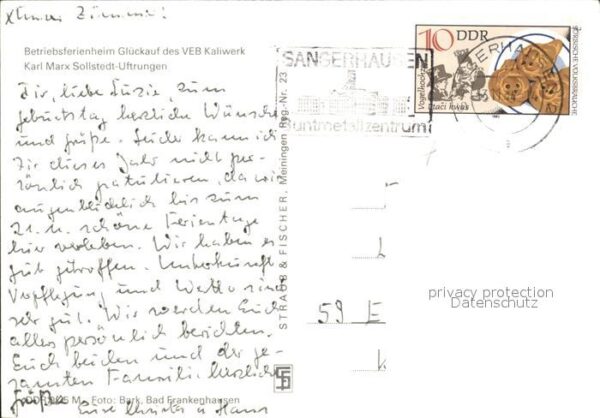 x unser Zimmer!
Betriebsferienheim Glückauf des VEB Kaliwerk
Karl Marx Sollstedt-Uftrungen
Dir, liebe Suzie, zum
Geburtstag herzliche Wünsche
und Grüße. Leider kann ich
Dir dieses Jahr nicht per-
sönlich gratulieren, da wir
augenblicklich bis zum
21.11. schöne Ferientage
hier verleben. Wir haben es
gut getroffen. Unterkunft
Verpflegung und Wetter sind
sehr gut. Wir werden Euch
alles persönlich berichten.
Euch beiden und der ge-
samten Familie herzliche
Grüße
Eure u Hans
DDR M Foto: Bark, Bad Frankenhausen
STRAUB & FISCHER, Meiningen Reg.-Nr. 23
SANGERHAUSEN
untmetallzentrum
10 DDR
Vogelhochzeit
ptači kwas
SORBISCHE VOLKSBRÄUCHE
59 E
privacy protection
Datenschutz